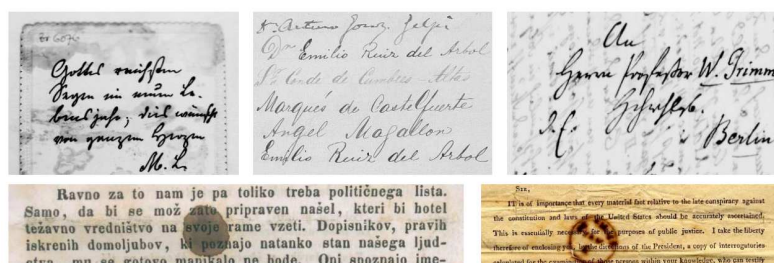 Gottes reichsten
Segen im neuen Le-
bensjahr, dies wünscht
von ganzem Herzen
M. L.
Dn Emilio Ruiz del Arbol
Sr Conde de Cumbres Altas
Marqués de Castelfuerte
Angel Magallon
Emilio Ruiz del Arbol
An
Herrn Professor W. Grimm
Berlin
Ravno za to nam je pa toliko treba političnega lista.
Samo, da bi se mož zatu pripraven našel, kteri bi hotel
težavno vredništvo na svoje rame vzeti. Dopisnikov, pravih
iskrenih domoljubov, ki poznajo natanko stan našega ljud-
stva, mu se gotovo manjkalo ne bode. Oni spoznajo ime-
SIR,
IT is of importance that every material fact relative to the late conspiracy against
the constitution and laws of the United States should be accurately ascertained.
This is essentially necessary for the purposes of public justice. I take the liberty
therefore of enclosing you, by the directions of the President, a copy of interrogatories
calculated for the examination of those persons within your knowledge, who can testify